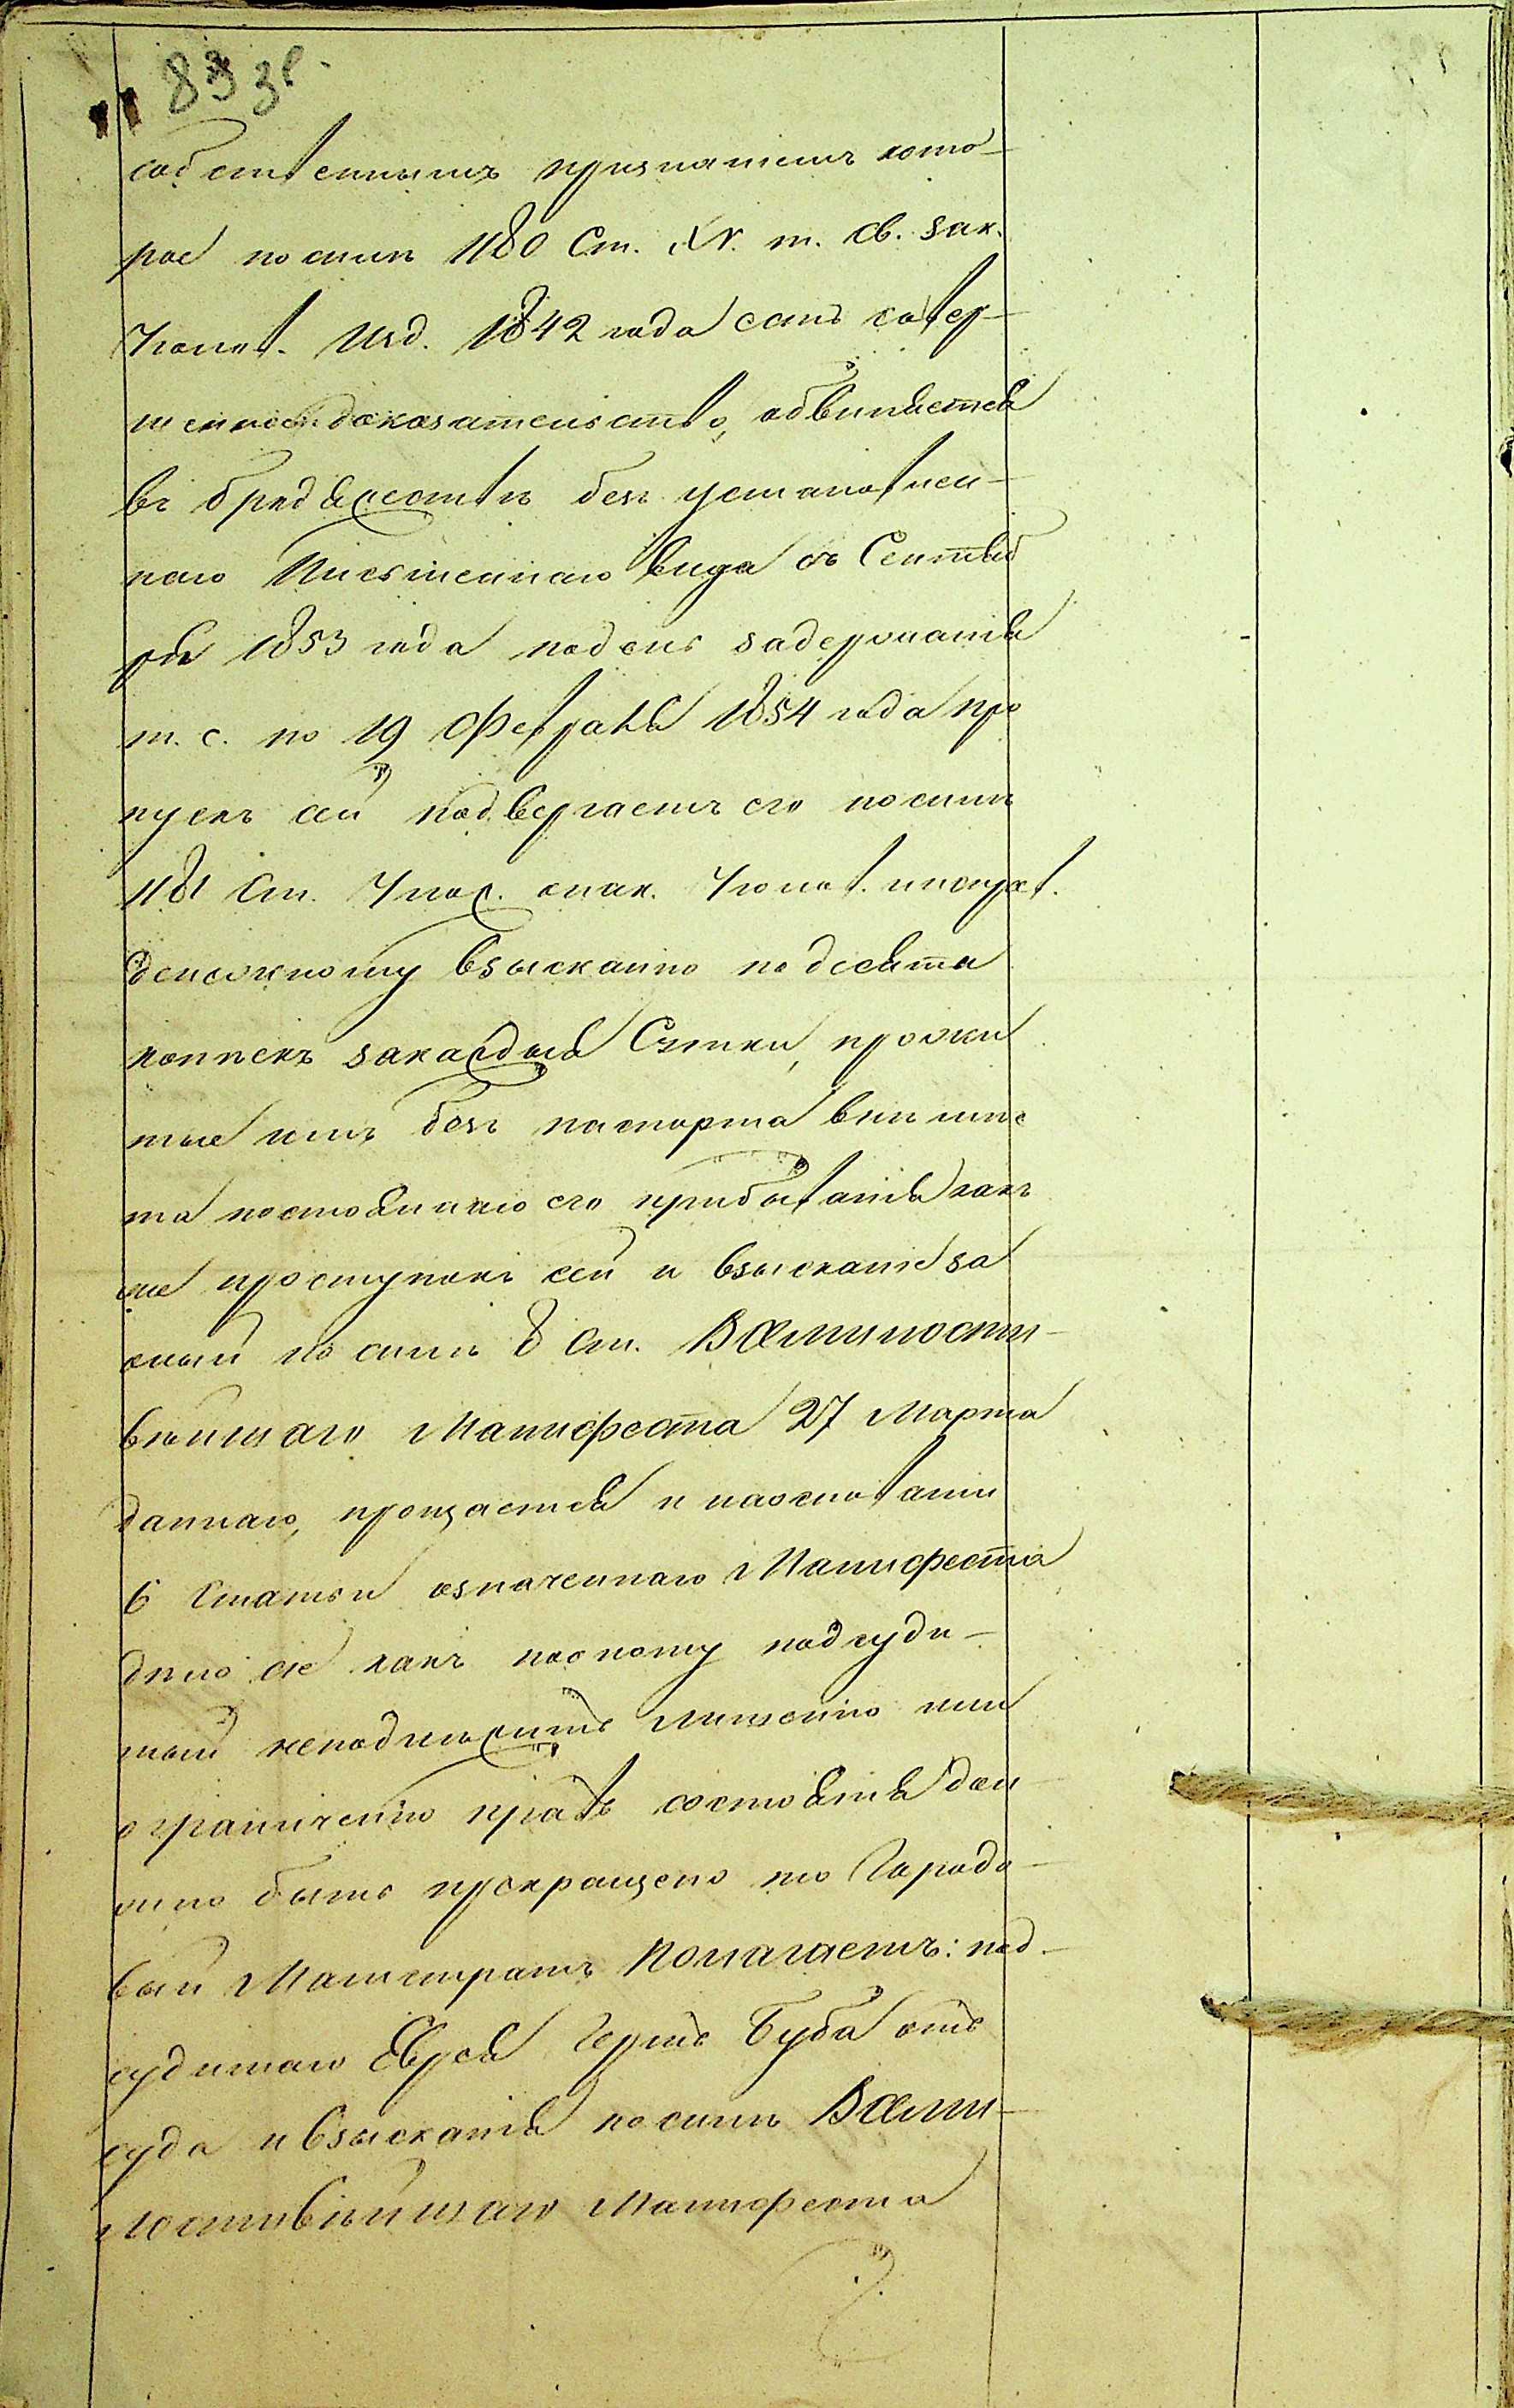 83 зв.
собственнымъ признаніемъ кото-
рое посилѣ 1180 Ст. XV. т. Св. зак.
Уголов. Изд. 1842 года есть совер-
шенное доказательство, обвиняется
въ бродяжествѣ безъ установлен-
наго Письменнаго вида съ Сентяб
ря 1853 года поденъ задержанія
т. е. по 19 Февраля 1854 года про
пускъ сей подвергаетъ его посилѣ
1181 Ст. Улож. онак. Уголов. иисправ.
денежному взысканію подесяти
копѣекъ закаждыя Сутки, прожи
тые имъ безъ паспорта внѣ мѣс
та постояннаго его пребыванія какъ
же проступокъ сей и взысканіе за
оный по силѣ 8 Ст. Всемилости-
вѣйшаго Манифеста 27 Марта
даннаго, прощается и наоснованіи
6 Статьи означеннаго Манифеста
дѣло сіе какъ пооному подсуди-
мый неподлѣжитъ лишенію или
ограниченію правъ состоянія дол
жно быть прекращено то Городо-
вый Магистратъ Полагаетъ: под-
судимаго Еврея Герша Буба отъ
суда и взысканія посилѣ Всеми-
лостивѣйшаго Манифеста